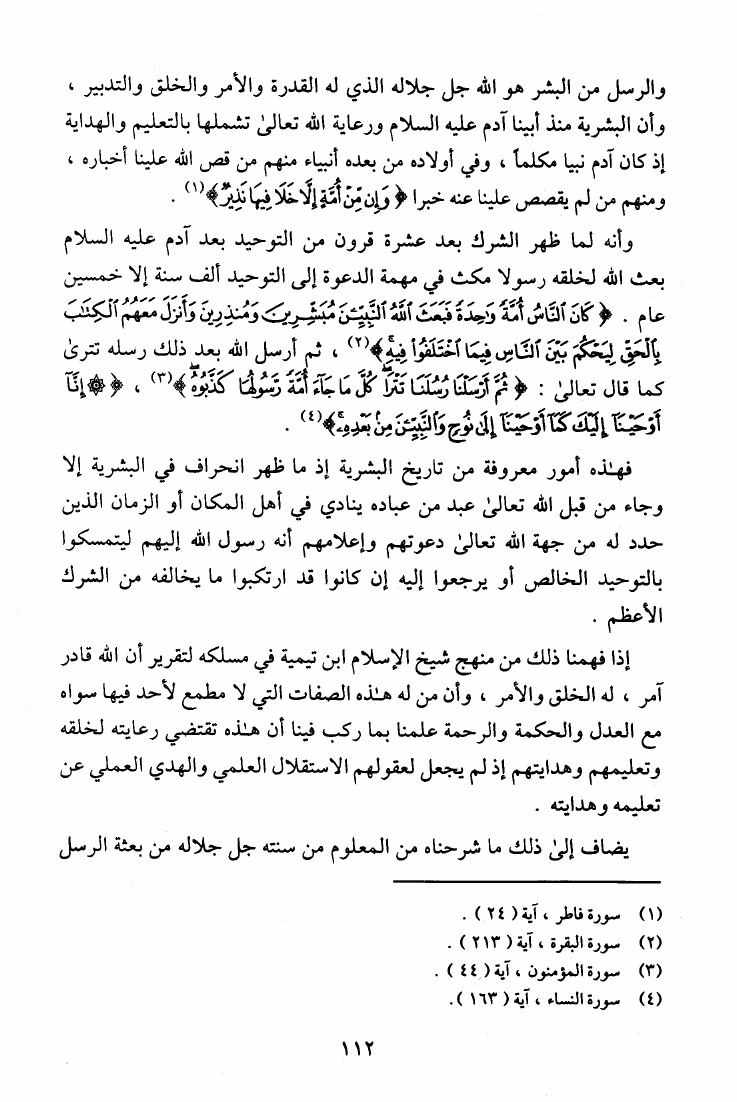 والرسل من البشر هو الله جل جلاله الذي له القدرة والأمر والخلق والتدبير ،
وأن البشرية منذ أبينا آدم عليه السلام ورعاية الله تعالىٰ تشملها بالتعليم والهداية
إذ كان آدم نبيا مكلماً ، وفي أولاده من بعده أنبياء منهم من قص الله علينا أخباره ،
ومنهم من لم يقصص علينا عنه خبرا ﴿ وَإِن مِّنْ أُمَّةٍ إِلَّا خَلَا فِيهَا نَذِيرٌ ﴾(١) .
وأنه لما ظهر الشرك بعد عشرة قرون من التوحيد بعد آدم عليه السلام
بعث الله لخلقه رسولا مكث في مهمة الدعوة إلى التوحيد ألف سنة إلا خمسين
عام . ﴿ كَانَ ٱلنَّاسُ أُمَّةً وَٰحِدَةً فَبَعَثَ ٱللَّهُ ٱلنَّبِيِّـۧنَ مُبَشِّرِينَ وَمُنذِرِينَ وَأَنزَلَ مَعَهُمُ ٱلْكِتَٰبَ
بِٱلْحَقِّ لِيَحْكُمَ بَيْنَ ٱلنَّاسِ فِيمَا ٱخْتَلَفُوا۟ فِيهِ ﴾(٢) ، ثم أرسل الله بعد ذلك رسله تترىٰ
كما قال تعالىٰ : ﴿ ثُمَّ أَرْسَلْنَا رُسُلَنَا تَتْرَا كُلَّ مَا جَآءَ أُمَّةً رَّسُولُهَا كَذَّبُوهُ ﴾(٣) ، ﴿ ۞ إِنَّآ
أَوْحَيْنَآ إِلَيْكَ كَمَآ أَوْحَيْنَآ إِلَىٰ نُوحٍ وَٱلنَّبِيِّـۧنَ مِنۢ بَعْدِهِۦ ﴾(٤) .
فهـٰذه أمور معروفة من تاريخ البشرية إذ ما ظهر انحراف في البشرية إلا
وجاء من قبل الله تعالىٰ عبد من عباده ينادي في أهل المكان أو الزمان الذين
حدد له من جهة الله تعالىٰ دعوتهم وإعلامهم أنه رسول الله إليهم ليتمسكوا
بالتوحيد الخالص أو يرجعوا إليه إن كانوا قد ارتكبوا ما يخالفه من الشرك
الأعظم .
إذا فهمنا ذلك من منهج شيخ الإسلام ابن تيمية في مسلكه لتقرير أن الله قادر
آمر ، له الخلق والأمر ، وأن من له هـٰذه الصفات التي لا مطمع لأحد فيها سواه
مع العدل والحكمة والرحمة علمنا بما ركب فينا أن هـٰذه تقتضي رعايته لخلقه
وتعليمهم وهدايتهم إذ لم يجعل لعقولهم الاستقلال العلمي والهدي العملي عن
تعليمه وهدايته .
يضاف إلىٰ ذلك ما شرحناه من المعلوم من سنته جل جلاله من بعثة الرسل
(١) سورة فاطر ، آية ( ٢٤ ) .
(٢) سورة البقرة ، آية ( ٢١٣ ) .
(٣) سورة المؤمنون ، آية ( ٤٤ ) .
(٤) سورة النساء ، آية ( ١٦٣ ).
١١٢